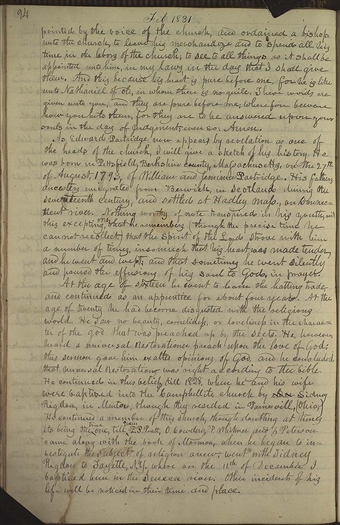 94
Feb 1831
pointed by the voice of the church, and ordained a bishop
unto the church, to leave his merchandize and to spend all his
time in the labors of the church; to see to all things as it shall be
appointed unto him, in my laws in the day that I shall give
them. And this because his heart is pure before me, for he is like
unto Nathaniel of old, in whom there is no guile. These words are
given unto you, and they are pure before me; wherefore beware
how you hold them, for they are to be answered upon your
souls in the day of judgment; even so: Amen.
As Edward Partridge now appears by revelation as one of
the heads of the church, I will give a sketch of his history. He
was born in Pittsfield, Berkshire County, Massachusetts, on the 27th
of August, 1793, of William and Jemima Partridge. His father's
ancestor emigrated from Berwick, in Scotland, during the
seventeenth century, and settled at Hadley Mass, on Connec-
ticut river. Nothing worthy of note transpired in his youth, with
this exception, that he remembers (though the precise time he
cannot recollect) that the Spirit of the Lord strove with him
a number of times, insomuch that his heart was made tender,
and he went and wept; and that sometimes he went silently
and poured the effusions of his soul to God, in prayer.
At the age of sixteen he went to learn the hatting trade,
and continued as an apprentice for about four years. At the
age of twenty he had become disgusted with the religious
world. He saw no beauty, comeliness, or loveliness in the charac-
ter of the God that was preached up by the sects. He however
heard a universal Restorationer preach upon the love of God;
this sermon gave him exalted opinions of God, and he concluded
that universal Restoration was right according to the bible.
He continued in this belief till 1828, when he and his wife
were baptized into the Campbellite church by Sidney
Rigdon, in Mentor, though they resided in Painesville, (Ohio)
He continued a member of this church, though doubting at times
its being the true one, till P. P. Pratt, O. Cowdery, P. Whitmer and Z. Peterson
came along with the book of Mormon, when he began to in-
vestigate the subject of religion anew; went with Sidney
Rigdon to Fayette, N.Y. where on the 11th of December I
baptized him in the Seneca river. Other incidents of his
life will be noticed in their time and place.